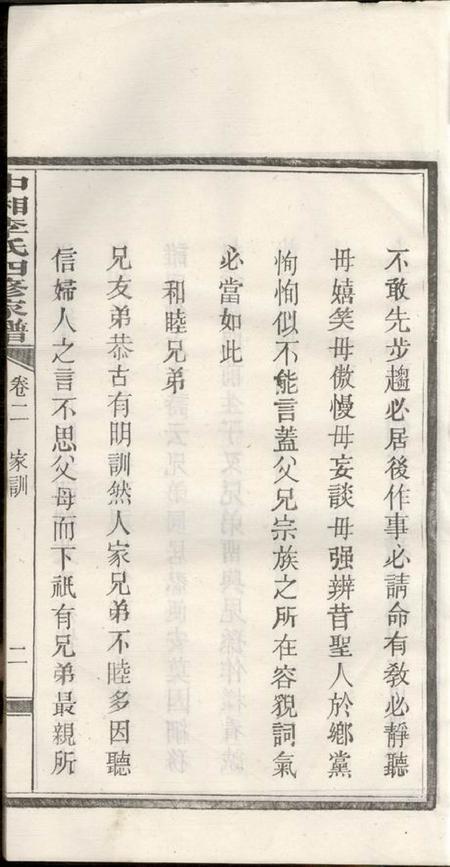 不敢先步趨必居後作事必請命有教必靜聽
毋嬉笑毋傲慢毋妄談毋强辨昔聖人於鄉黨
恂恂似不能言蓋父兄宗族之所在容貌詞氣
必當如此
和睦兄弟
兄友弟恭古有明訓然人家兄弟不睦多因聽
信婦人之言不思父母而下祇有兄弟最親所
中湘李氏四修家譜
卷二
家訓
二